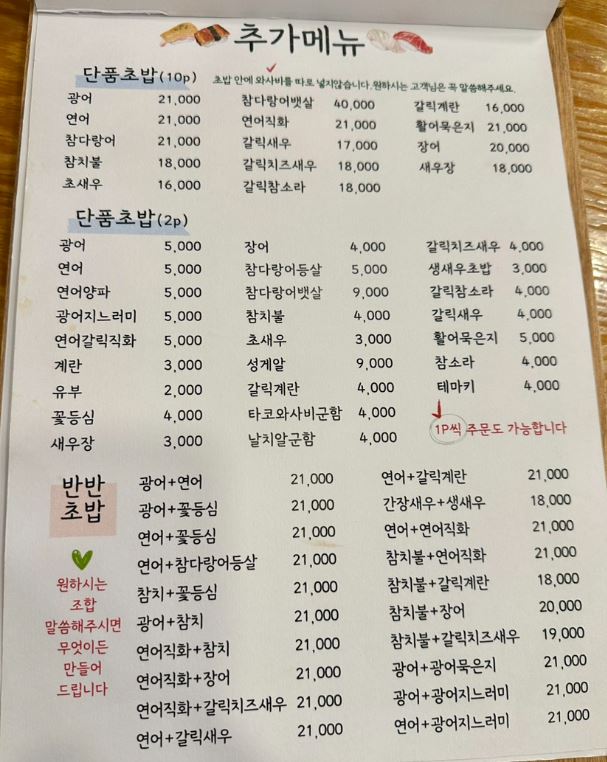 추가메뉴
단품초밥(10p)
초밥 안에 와사비를 따로 넣지않습니다.원하시는 고객님은 꼭 말씀해주세요.
광어 21,000 참다랑어뱃살 40,000 갈릭계란 16,000
연어 21,000 연어직화 21,000 활어묵은지 21,000
참다랑어 21,000 갈릭새우 17,000 장어 20,000
참치불 18,000 갈릭치즈새우 18,000 새우장 18,000
초새우 16,000 갈릭참소라 18,000
단품초밥(2p)
광어 5,000 장어 4,000 갈릭치즈새우 4,000
연어 5,000 참다랑어등살 5,000 생새우초밥 3,000
연어양파 5,000 참다랑어뱃살 9,000 갈릭참소라 4,000
광어지느러미 5,000 참치불 4,000 갈릭새우 4,000
연어갈릭직화 5,000 초새우 3,000 활어묵은지 5,000
계란 3,000 성게알 9,000 참소라 4,000
유부 2,000 갈릭계란 4,000 테마키 4,000
꽃등심 4,000 타코와사비군함 4,000
새우장 3,000 날치알군함 4,000
1P씩 주문도 가능합니다
반반
초밥
원하시는
조합
말씀해주시면
무엇이든
만들어
드립니다
광어+연어 21,000 연어+갈릭계란 21,000
광어+꽃등심 21,000 간장새우+생새우 18,000
연어+꽃등심 21,000 연어+연어직화 21,000
연어+참다랑어등살 21,000 참치불+연어직화 21,000
참치+꽃등심 21,000 참치불+갈릭계란 18,000
광어+참치 21,000 참치불+장어 20,000
연어직화+참치 21,000 참치불+갈릭치즈새우 19,000
연어직화+장어 21,000 광어+광어묵은지 21,000
연어직화+갈릭치즈새우 21,000 광어+광어지느러미 21,000
연어+갈릭새우 21,000 연어+광어지느러미 21,000